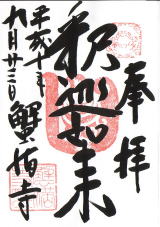 奉拝
釈迦如来
蟹満寺
平成十年
九月廿三日